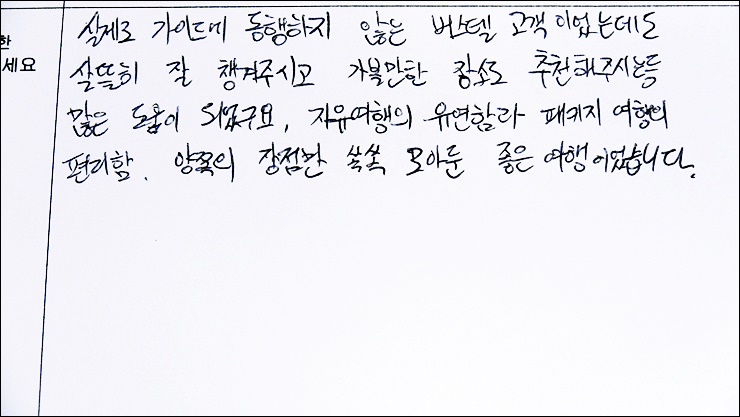 실제로 가이드에 동행하지 않은 버스텔 고객이었는데도
한
세요
살뜰히 잘 챙겨주시고 가볼만한 장소도 추천해주시는등
많은 도움이 되었구요, 자유여행의 유연함과 패키지 여행의
편리함. 양쪽의 장점만 쏙쏙 모아둔 좋은 여행이었습니다.